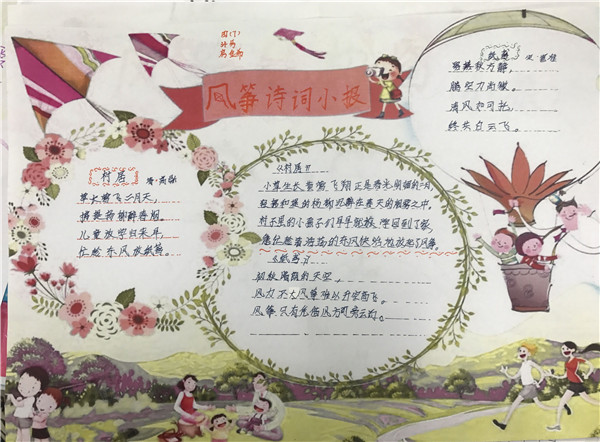 四(7)
风筝诗词小报
村居
清·高鼎
草长莺飞二月天，
拂堤杨柳醉春烟。
儿童放学归来早，
忙趁东风放纸鸢。
《村居》
小草生长，黄莺飞翔正是春光明媚的二月，
轻轻和柔的杨柳沉醉在春天的烟雾之中，
村子里的小孩子们早早就放学回到了家，
急忙趁着浩荡的东风悠然地放起了风筝。
《纸鸢》
初秋 的天空，
风力不大风筝难以升空高飞。
风筝只有凭借风方可旁云行。
纸鸢
初秋
鹏空力尚微。
清风如可托，
终共白云飞。